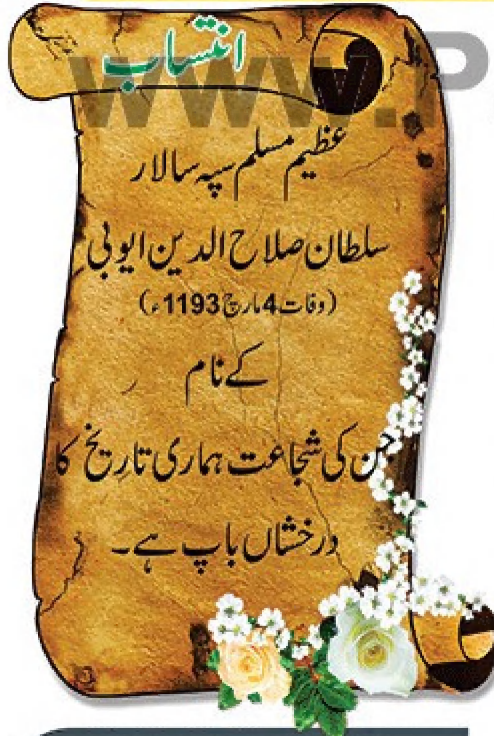 انتساب
www.P
عظیم مسلم سپہ سالار
سلطان صلاح الدین ایوبی
(وفات 4 مارچ 1193ء)
کے نام
جن کی شجاعت ہماری تاریخ کا
درخشاں باپ ہے۔